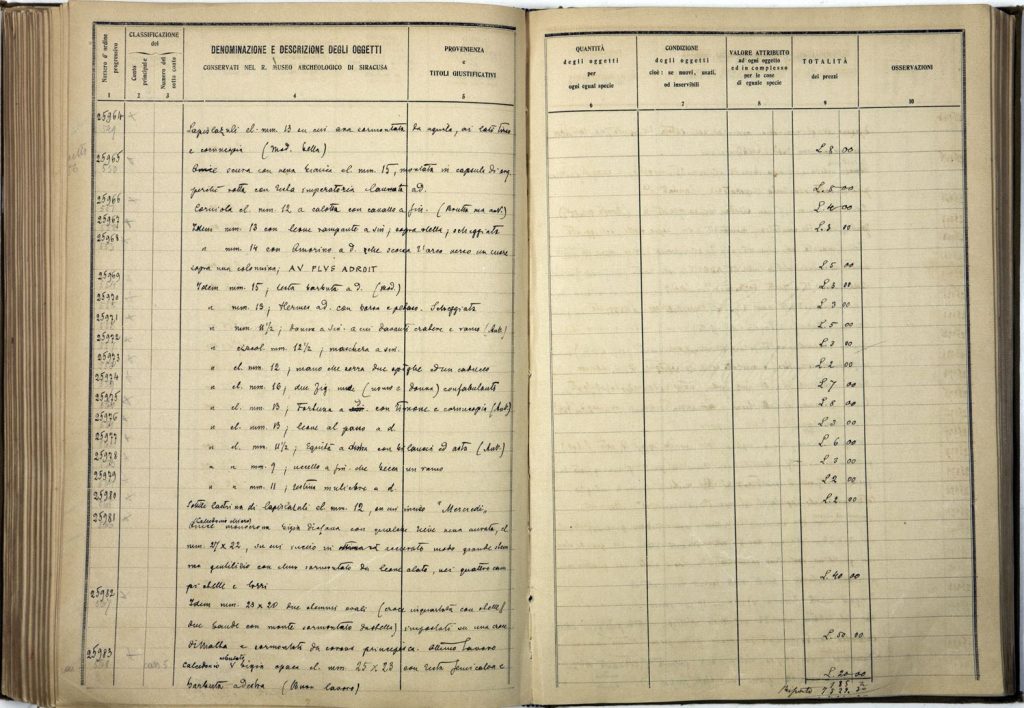 Numero d'ordine progressivo
CLASSIFICAZIONE del
Conto principale
Numero del sotto conto
DENOMINAZIONE E DESCRIZIONE DEGLI OGGETTI
CONSERVATI NEL R. MUSEO ARCHEOLOGICO DI SIRACUSA
PROVENIENZA
e
TITOLI GIUSTIFICATIVI
1 2 3 4 5
QUANTITÀ
degli oggetti
per
ogni egual specie
CONDIZIONE
degli oggetti
cioè: se nuovi, usati,
od inservibili
VALORE ATTRIBUITO
ad ogni oggetto
ed in complesso
per le cose
di eguale specie
TOTALITÀ
dei prezzi
OSSERVAZIONI
6 7 8 9 10
25964
Lapislazuli el. mm. 13 su cui ara sormontata da aquila, ai lati
e cornucopia (Mod. bella) L. 8 00
25965
Onice scura con vena el. mm. 15, montata in capsula di
rotta con testa imperatoria laureata a d. L. 8 00
25966
Corniola el. mm. 12 a calotta con cavallo a sin. L. 4 00
25967
Idem mm. 13 con leone rampante a sin; sopra stella; scheggiata L. 3 00
25968
" mm. 14 con Amorino a d. che scocca l'arco verso un cuore
sopra una colonnina; AV PLVS ADROIT L. 5 00
25969
Idem mm. 15; testa barbuta a d. (Mod.) L. 3 00
25970
" mm. 13; Hermes a d. con borsa e petaso. Scheggiata L. 3 00
25971
" mm. 11 1/2; donna a sin. a cui davanti e ramo (Ant.) L. 5 00
25972
" mm. 12 1/2; maschera a sin. L. 3 00
25973
" el. mm. 12; mano che serra due spighe ed un caduceo L. 2 00
25974
" el. mm. 16; due fig. nude (uomo e donna) confabulanti L. 7 00
25975
" el. mm. 13; Fortuna a con timone e cornucopia (Ant.) L. 8 00
25976
" el. mm. 13; leone al passo a d. L. 3 00
25977
" el. mm. 11 1/2; Equità a destra con bilancia ed asta (Ant.) L. 6 00
25978
" " mm. 9; uccello a sin. che becca un ramo L. 3 00
25979
" " mm. 11; testina muliebre a d. L. 2 00
25980
Sottile lastrina di lapislazuli el. mm. 12, su cui inciso "Mercedi„ L. 2 00
25981
Onice monocroma bigia diafana con qualche lieve vena, el.
mm. 27 x 22, su cui inciso in accurato modo grande
gentilizio con elmo sormontato da leone alato, nei quattro cam
pi stelle e torri L. 40 00
25982
Idem mm. 23 x 20 due stemmi ovali (croce inquartata con stelle;
due bande con monte sormontato da stella) impostati su una croce
di Malta e sormontati da corona principesca. Ottimo lavoro L. 50 00
25983
calcedonio bigia opaca el. mm. 25 x 23 con testa e
barbuta a destra (Buon lavoro) L. 20 00
Riporto